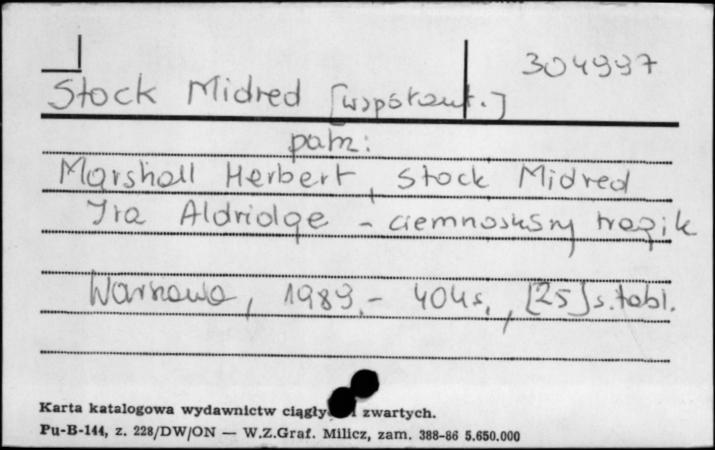 304997
Stock Midred [współaut.]
patrz:
Marshall Herbert, Stock Midred
Ira Aldridge - ciemnoskóry tragik
Warszawa, 1989.- 404s., [25]s.tabl.
Karta katalogowa wydawnictw ciągły i zwartych.
Pu-B-144, z. 228/DW/ON — W.Z.Graf. Milicz, zam. 388-86 5.650.000